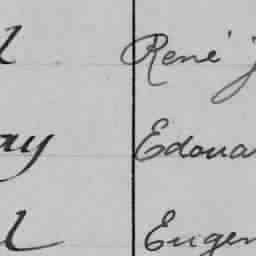 René
ay Edoua
Eugen